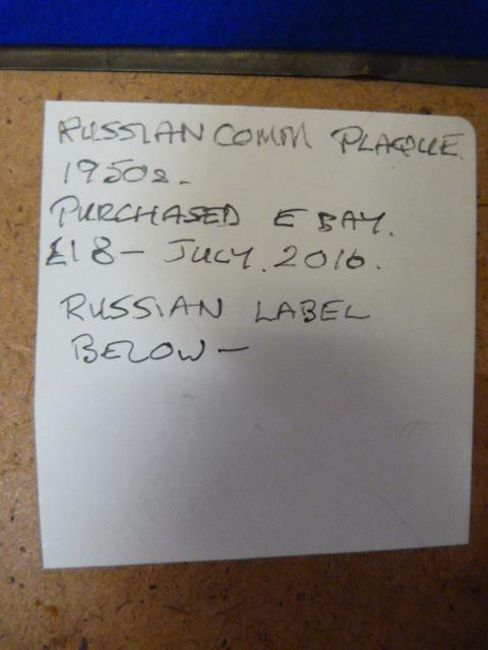 RUSSIAN COMM PLAQUE.
1950s.
PURCHASED E BAY.
£18 - JULY. 2016.
RUSSIAN LABEL
BELOW -